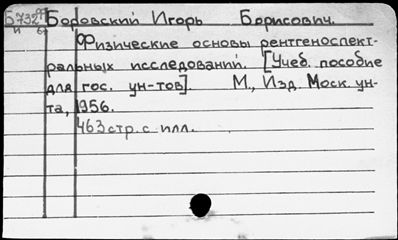 Б732 Боровский Игорь Борисович.
и Физические основы рентгеноспект-
ральных исследований. [Учеб. пособие
для гос. ун-тов]. М., Изд. Моск. ун-
та, 1956.
463 стр. с илл.